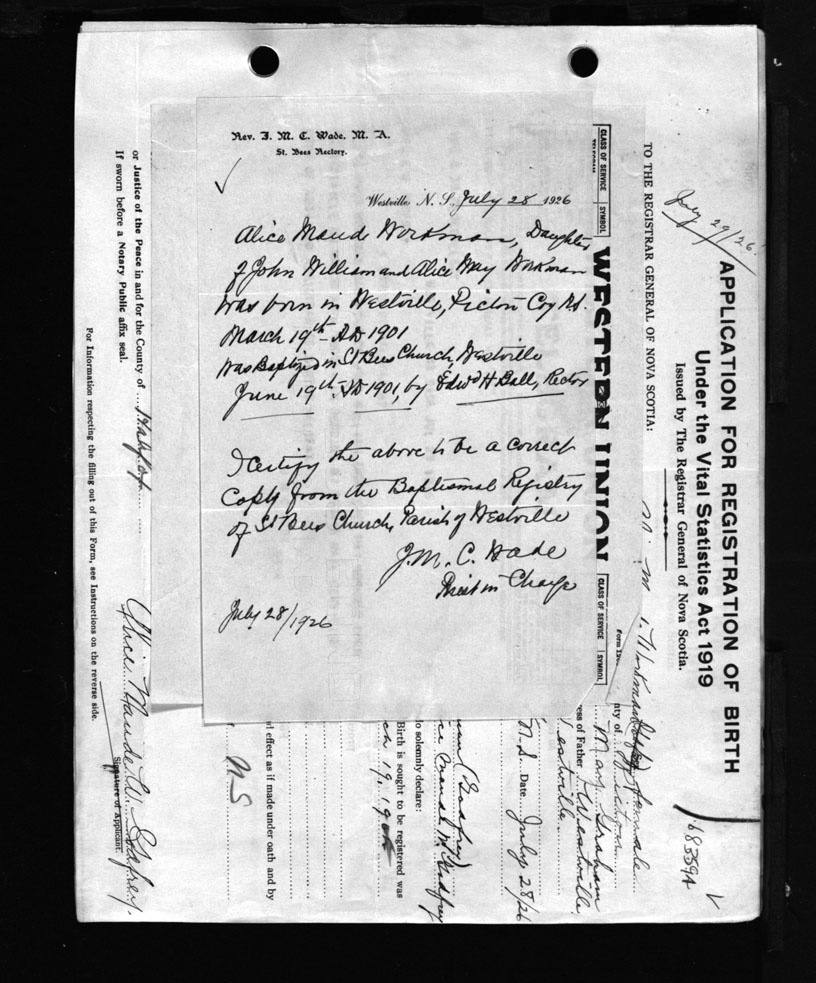 Rev. J. M. C. Wade. M. A.
St. Bees Rectory.
Westville, N. S., July 28 1926
Alice Maude Workman, Daughter
of John William and Alice May Workman
was born in Westville, Pictou Coy NS.
March 19th AD 1901
Was Baptized in St Bees Church, Westville
June 19th AD 1901, by Edwd H Ball, Rector
I certify the above to be a correct
Copy from the Baptismal Registry
of St Bees Church, Parish of Westville
J. M. C. Wade
Priest in Charge
July 28/1926
CLASS OF SERVICE SYMBOL
WESTERN UNION
CLASS OF SERVICE SYMBOL
July 29/26.
APPLICATION FOR REGISTRATION OF BIRTH
Under the Vital Statistics Act 1919
Issued by The Registrar General of Nova Scotia.
TO THE REGISTRAR GENERAL OF NOVA SCOTIA:
68359A
Workman female
nty of Pictou
Mary Graham
ess of Father Westville
Westville.
N.S. Date July 28/26
(Godfrey)
Maude W. Godfrey
do solemnly declare:
Birth is sought to be registered was
ch 19, 190
al effect as if made under oath and by
N S
or Justice of the Peace in and for the County of Halifax
If sworn before a Notary Public affix seal.
Alice Maude W. Godfrey.
Signature of Applicant.
For Information respecting the filling out of this Form, see Instructions on the reverse side.